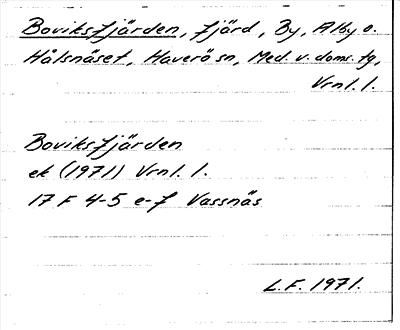 Boviksfjärden, fjärd, By, Alby o.
Hålsnäset, Haverö sn, Med. v. doms. tg,
Vrnl. l.
Boviksfjärden
ek (1971) Vrnl. l.
17 F 4-5 e-f Vassnäs
L.F. 1971.